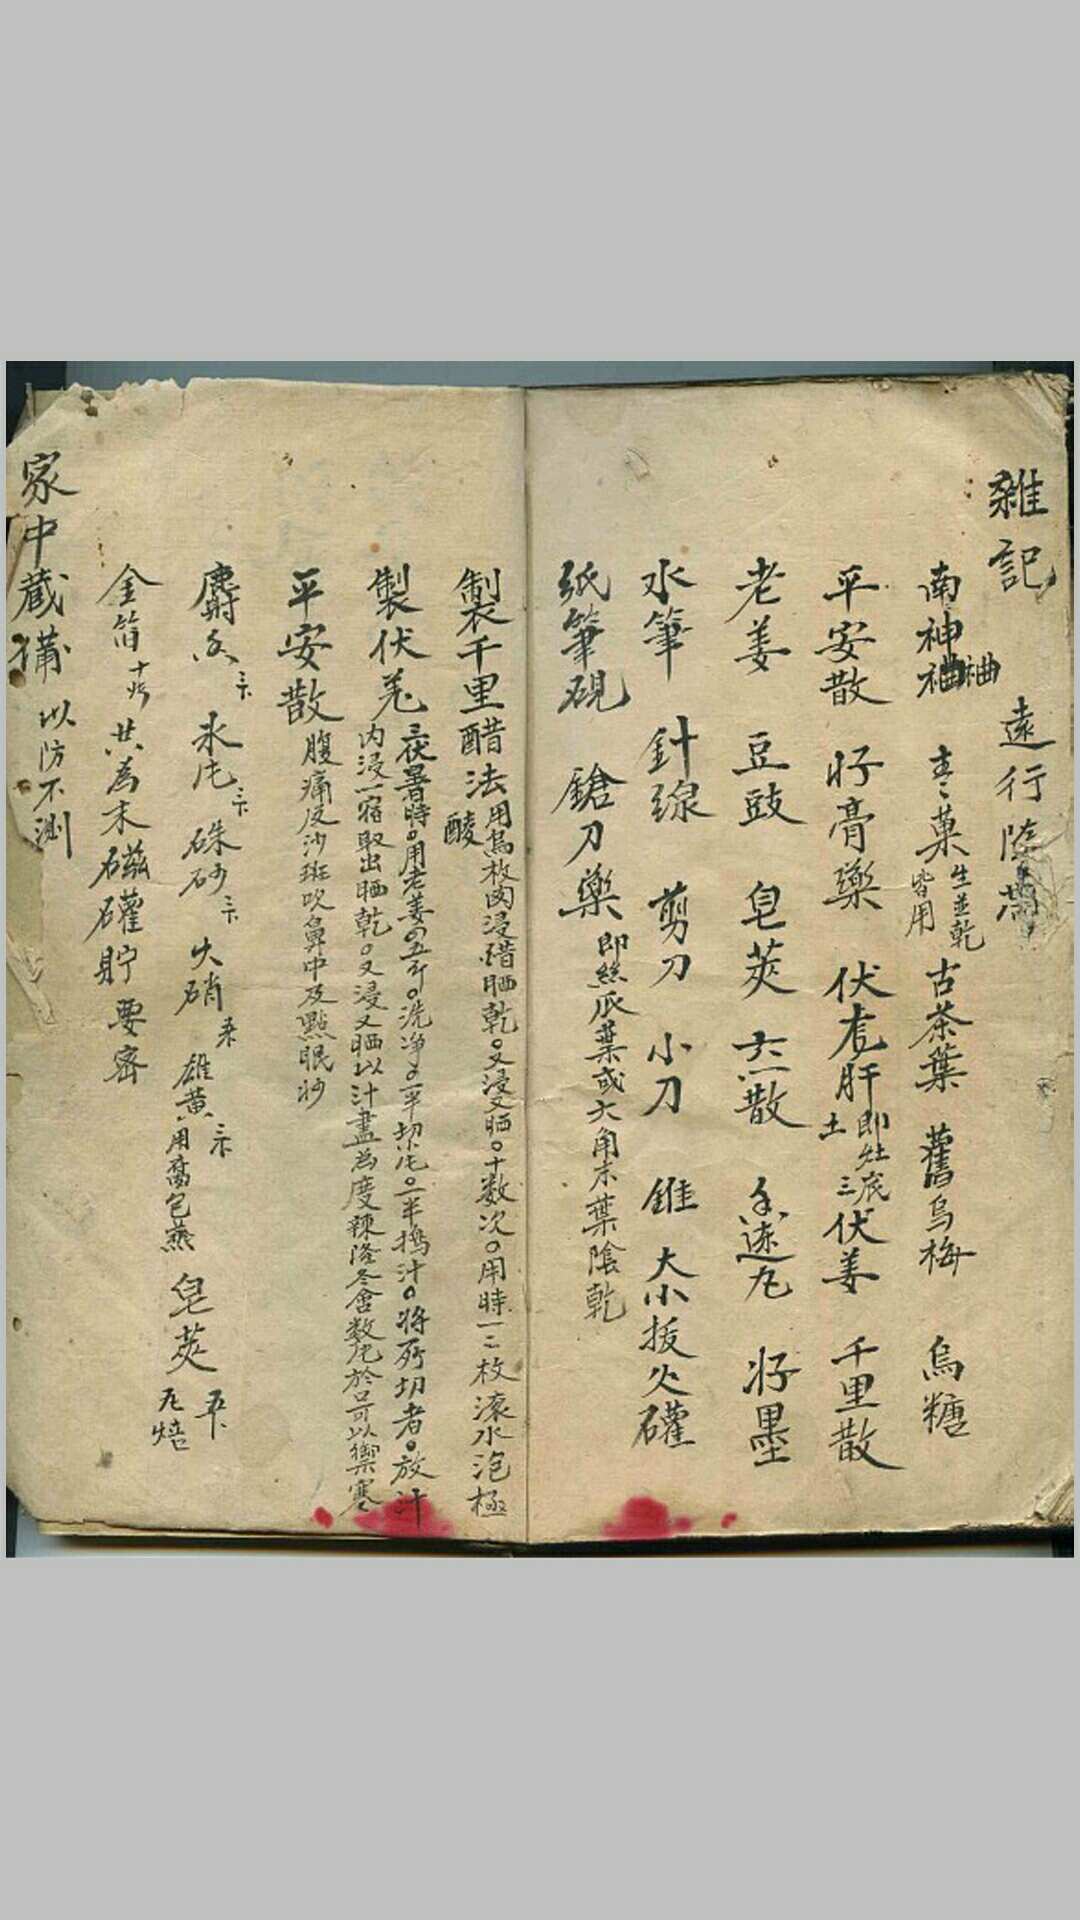 雜記
遠行隨
南神袖
袖
棗菓 生並乾皆用 古茶葉 舊烏梅 烏糖
平安散 好膏藥 伏肝 即灶底土 三伏姜 千里散
老姜 豆豉 皂莢 散 丸 好墨
水筆 針線 剪刀 小刀 錐 大小援火礶
紙筆硯 鎗刀藥 即絲瓜葉或大角末葉陰乾
製千里醋法 用烏枚肉浸醋晒乾。又浸又晒。十数次。用時一二枚滾水泡極
酸
製伏羌 三伏暑時。用老姜四五斤。洗净。一半切片。一半搗汁。将所切者。放汁
内浸一宿取出晒乾。又浸又晒以汁盡為度辣隆冬含数片於口可以禦寒
平安散 腹痛反沙斑吹鼻中及點眼妙
麝香 氷片 硃砂 火硝 雄黃 用腐包蒸 皂莢
金箔 十張 共為末磁礶貯要密
家中蔵備 以防不測